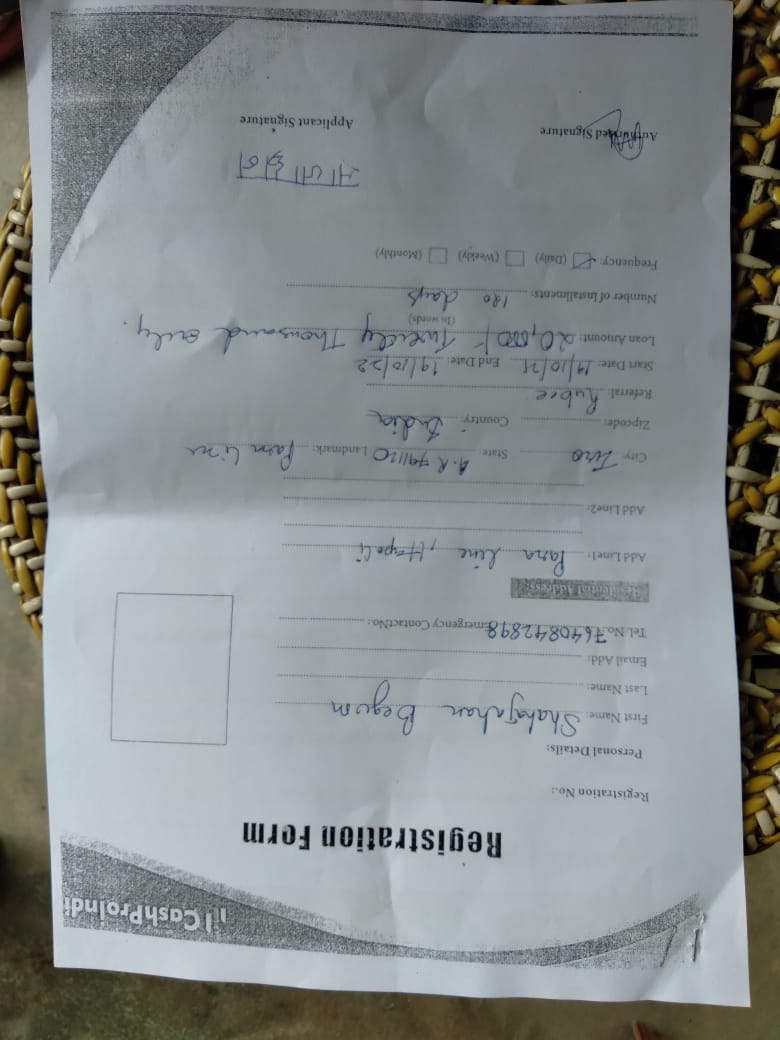 CashProIndi
Registration Form
Registration No.:
Personal Details:
First Name: Shahajahan Begum
Last Name:
Email Add:
Tel. No. 7640842898 Emergency ContactNo.:
Residential Address:
Add Line1: Para Line, Hapoli
Add Line2:
City: Ziro State: A.R 791120 Landmark: Para Line
Zipcode: Country: India
Referral:
Start Date: 19/10/21 End Date: 19/10/22
Loan Amount: 20,000/- Twenty Thousand only.
(In words)
Number of Installments: 180 days
Frequency: (Daily) (Weekly) (Monthly)
Authorized Signature Applicant Signature